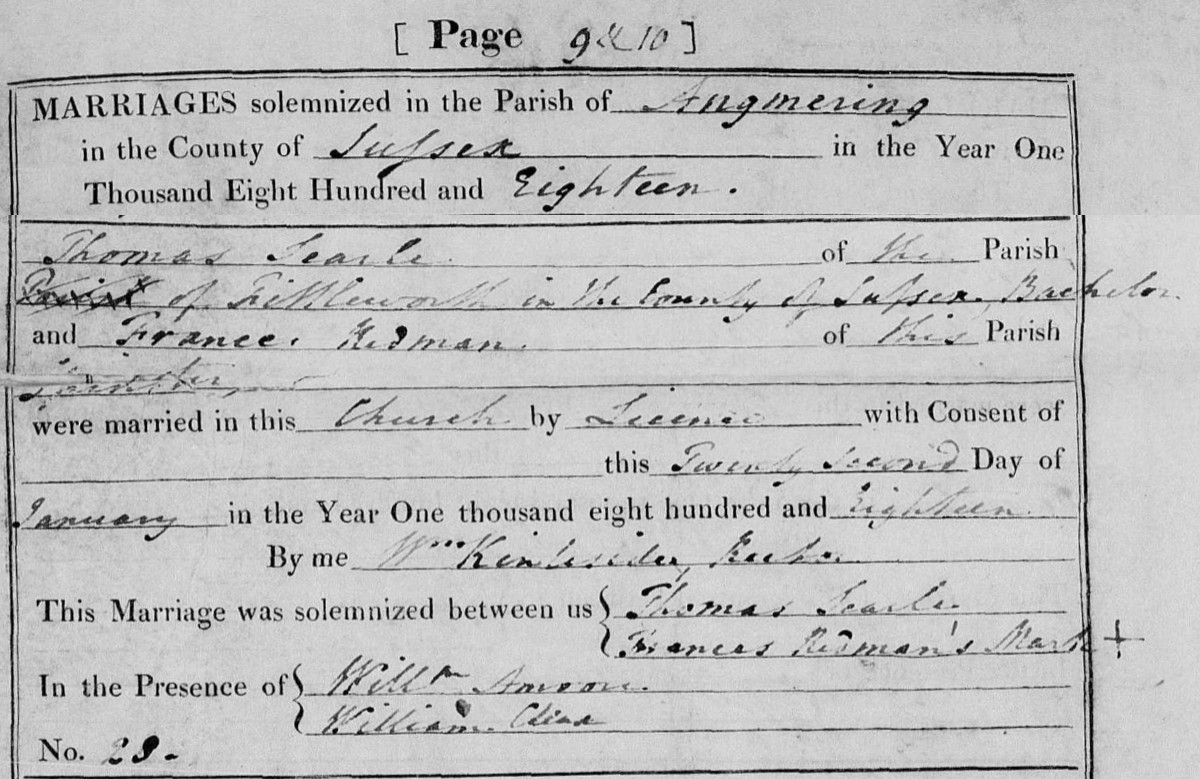 [ Page 9 & 10 ]
MARRIAGES solemnized in the Parish of Angmering
in the County of Sussex in the Year One
Thousand Eight Hundred and Eighteen.
Thomas Searle of the Parish
of Fittleworth in the County of Sussex, Bachelor
and France. Redman. of this Parish
Spinster
were married in this Church by Licence with Consent of
this Twenty Second Day of
January in the Year One thousand eight hundred and Eighteen
By me Wm Kinleside, Rector
This Marriage was solemnized between us Thomas Searle
Frances Redman's Mark +
In the Presence of Willm
William
No. 28.